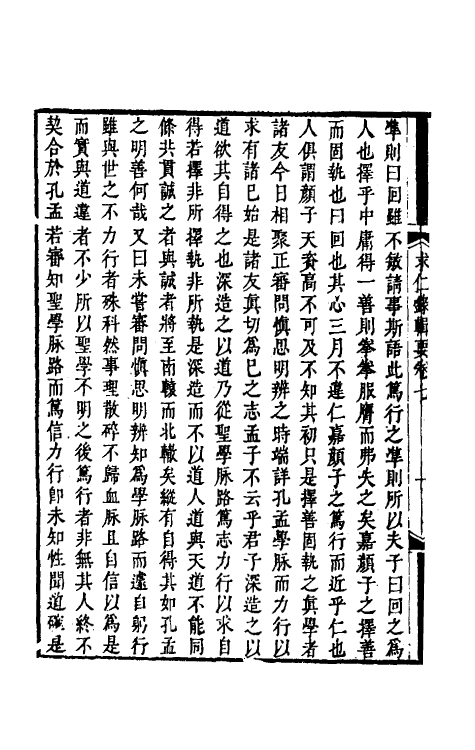 求仁錄輯要卷七
準則曰回雖不敏請事斯語此篤行之準則所以夫子曰回之爲
人也擇乎中庸得一善則拳拳服膺而弗失之矣嘉顏子之擇善
而固執也曰回也其心三月不違仁嘉顏子之篤行而近乎仁也
人俱謂顏子天資高不可及不知其初只是擇善固執之眞學者
諸友今日相聚正審問慎思明辨之時端詳孔孟學脈而力行以
求有諸已始是諸友眞切爲已之志孟子不云乎君子深造之以
道欲其自得之也深造之以道乃從聖學脈路篤志力行以求自
得若擇非所擇執非所執是深造而不以道人道與天道不能同
條共貫誠之者與誠者將至南轅而北轍矣縱有自得其如孔孟
之明善何哉又曰未嘗審問慎思明辨知爲學脈路而遽自躬行
雖與世之不力行者殊科然事理散碎不歸血脈且自信以爲是
而實與道違者不少所以聖學不明之後篤行者非無其人終不
契合於孔孟若審知聖學脈路而篤信力行卽未知性聞道確是